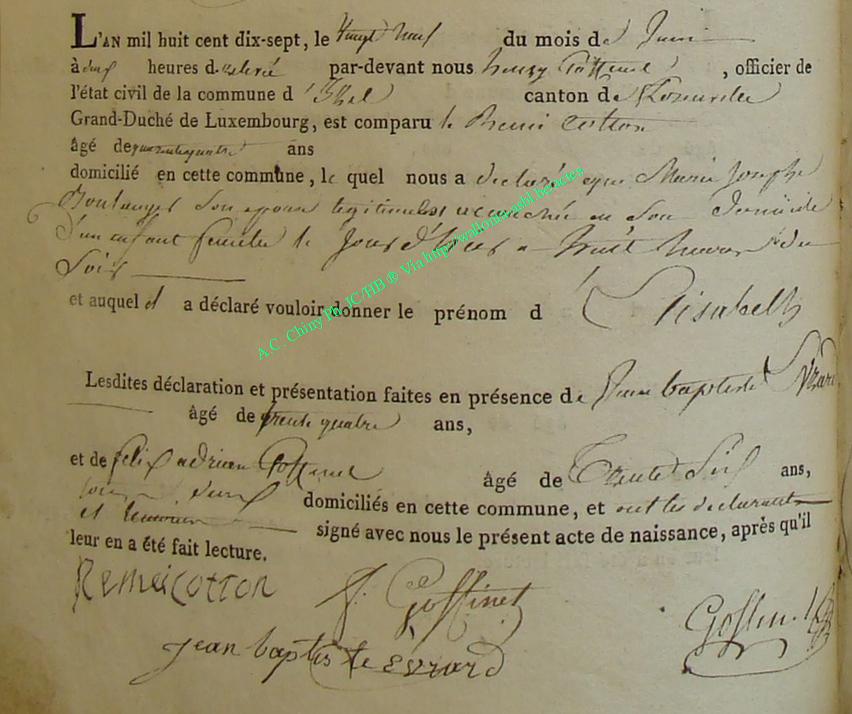 L'AN mil huit cent dix-sept, le Vingt neuf du mois de Juin
à deux heures de relevé par-devant nous henry Goffinet, officier de
l'état civil de la commune d'Izel canton de
Grand-Duché de Luxembourg, est comparu le Remi Cotton
âgé de quarante quatre ans
domicilié en cette commune, le quel nous a declaré que Marie Josephe
Boulanger son epouse legitime est accouchée en son Domicile
D'un enfant femelle le Jour d'hier a huit heures du
Soir
et auquel il a déclaré vouloir donner le prénom d'Elisabeth
Lesdites déclaration et présentation faites en présence de Jean baptiste Evrard
âgé de trente quatre ans,
et de felix adrien Goffinet âgé de Trente Six ans,
tous deux domiciliés en cette commune, et ont les declarant
et temoins signé avec nous le présent acte de naissance, après qu'il
leur en a été fait lecture.
Remei Cotton
f. Goffinet
Goffinet
jean baptiste Evrard
A.C. Chiny Ph JC/HB ® Via http://wallonica.asbl.be/actes